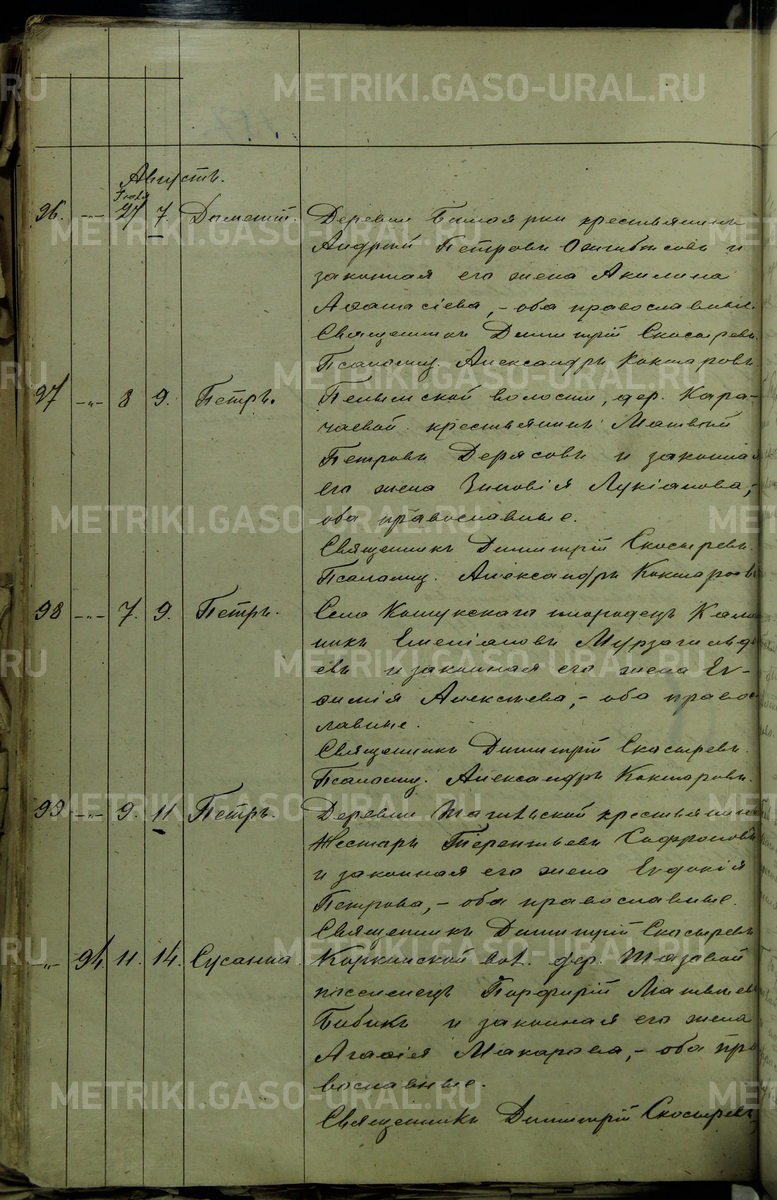 METRIKI.GASO-URAL.RU
Августъ.
Іюля
96. -"- 27 7. Дометій. Деревни крестьянинъ
Андрей Петровъ и
законная его жена Акилина
Аѳанасіева, - оба православные.
Священникъ Димитрій Скосыревъ.
Псаломщ. Александръ Кокшаровъ.
97 -"- 8 9. Петръ. Пелымской волости, дер. Кара-
чаевой крестьянинъ Матвѣй
Петровъ Дерясовъ и законная
его жена Зиновія Лукіанова, -
оба православные.
Священникъ Димитрій Скосыревъ.
Псаломщ. Александръ Кокшаровъ
98 -"- 7. 9. Петръ. Села Кошукскаго инородецъ Калин-
никъ Емеліановъ Мурзагильдѣ-
евъ и законная его жена Ев-
фимія Алексѣева, - оба право-
славные.
Священникъ Димитрій Скосыревъ.
Псаломщ. Александръ Кокшаровъ.
99 -"- 9. 11 Петръ. Деревни крестьянинъ
Нестеръ Терентьевъ Софроновъ
и законная его жена Евдокія
Петрова, - оба православные.
Священникъ Димитрій Скосыревъ
-"- 94. 11. 14. Сусанна Коркинской вол. дер.
поселенецъ Порфирій Матвѣевъ
Бибикъ и законная его жена
Агафія Макарова, - оба пра-
вославные.
Священникъ Димитрій Скосыревъ,